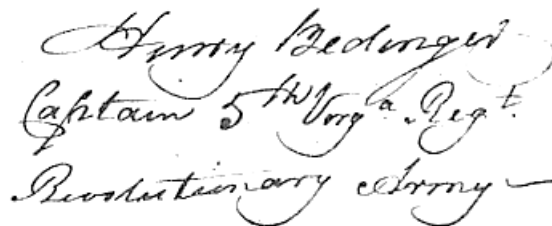 Henry Bedinger
Captain 5th Virga. Regt.
Revolutionary Army—